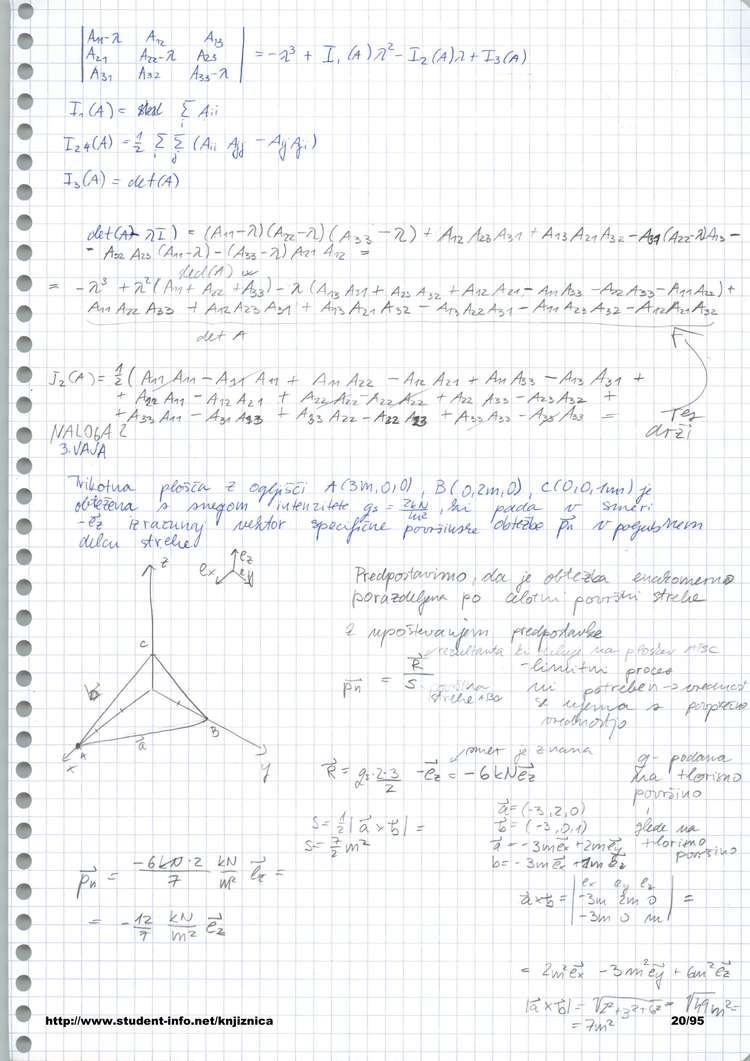 | A11-λ A12 A13 |
| A21 A22-λ A23 | = -λ³ + I₁(A)λ² - I₂(A)λ + I₃(A)
| A31 A32 A33-λ |
I₁(A) = Σ Aii
I₂(A) = ½ Σ Σ (Aii Ajj - Aij Aji)
I₃(A) = det(A)
det(A-λI) = (A11-λ)(A22-λ)(A33-λ) + A12 A23 A31 + A13 A21 A32 - A31(A22-λ)A13 -
- A32 A23 (A11-λ) - (A33-λ) A21 A12 =
= -λ³ + λ²(A11 + A22 + A33) - λ (A13 A31 + A23 A32 + A12 A21 - A11 A33 - A22 A33 - A11 A22) +
A11 A22 A33 + A12 A23 A31 + A13 A21 A32 - A13 A22 A31 - A11 A23 A32 - A12 A21 A32
det A
I₂(A) = ½ (A11 A11 - A11 A11 + A11 A22 - A12 A21 + A11 A33 - A13 A31 +
+ A22 A11 - A12 A21 + A22 A22 - A22 A22 + A22 A33 - A23 A32 +
+ A33 A11 - A31 A33 + A33 A22 - A22 A23 + A33 A33 - A33 A33 =
Tez
drži
NALOGA 2
3. VAJA
Trikotna plošča z oglišči A(3m,0,0), B(0,2m,0), C(0,0,1m) je
obtežena s snegom intenzitete gs = 2kN/m², ki pada v smeri
-ez izračunaj vektor specifične površinske obtežbe pn v poljubnem
delcu strehe
z
ex ez
ey
C
b
A a B
x y
Predpostavimo, da je obtežba enakomerno
porazdeljena po celotni površini strehe
Z upoštevanjem predpostavke
rezultanta ki deluje na ploskev ABC
pn = R/S
površina
strehe ABC
- limitni proces
ni potreben → vrednost
se ujema s povprečno
vrednostjo
smer je znana
R = gs · 2·3/2 · -ez = -6kN ez
g - podana
na tlorisno
površino
S = ½ |a x b| =
S = 7/2 m²
a = (-3, 2, 0)
b = (-3, 0, 1)
a = -3m ex + 2m ey
b = -3m ex + 1m ez
glede na
tlorisno
površino
pn = -6kN·2/7 kN/m² ez =
= -12/7 kN/m² ez
a x b = | ex ey ez |
| -3m 2m 0 | =
| -3m 0 m |
= 2m² ex - 3m² ey + 6m² ez
|a x b| = √2²+3²+6² = √49 m² =
= 7m²
http://www.student-info.net/knjiznica 20/95